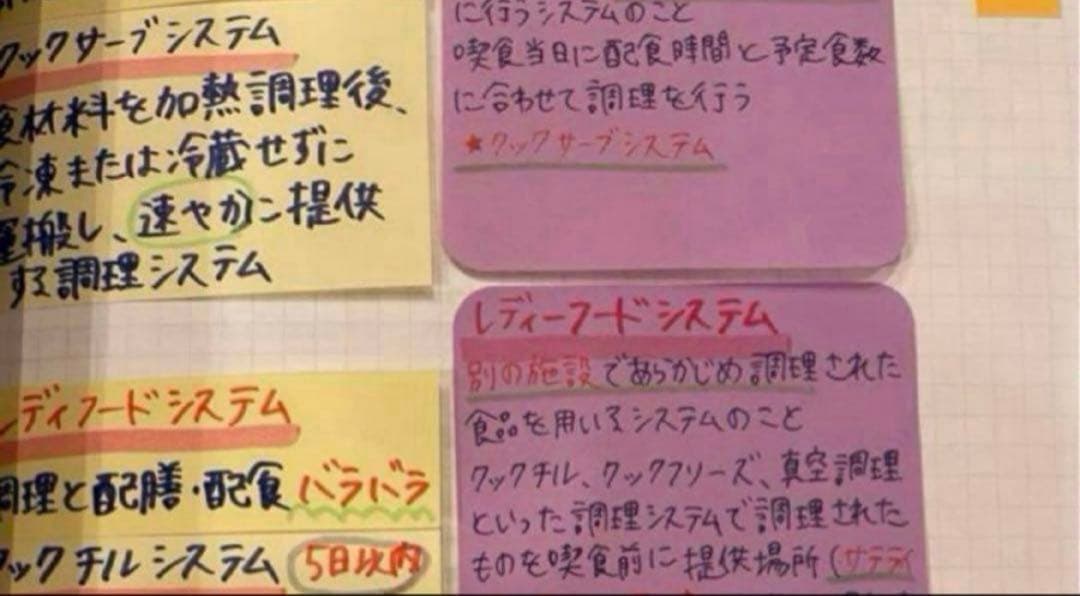 クックサーブシステム
食材料を加熱調理後、
冷凍または冷蔵せずに
運搬し、速やかに提供
する調理システム
レディフードシステム
調理と配膳・配食バラバラ
クックチルシステム 5日以内
に行うシステムのこと
喫食当日に配食時間と予定食数
に合わせて調理を行う
★クックサーブシステム
レディーフードシステム
別の施設であらかじめ調理された
食品を用いるシステムのこと
クックチル、クックフリーズ、真空調理
といった調理システムで調理された
ものを喫食前に提供場所(サテライ